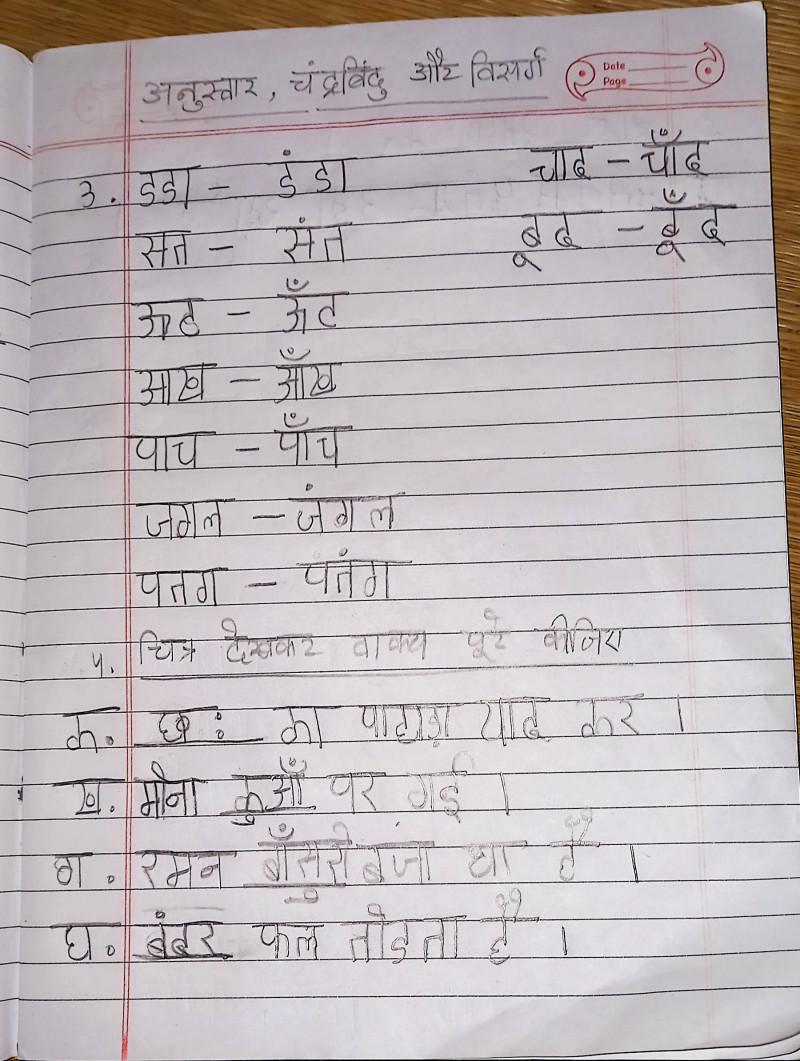 अनुस्वार, चंद्रबिंदु और विसर्ग
Date
Page
3. डडा - डंडा चाद - चाँद
सत - संत बूद - बूँद
ऊट - ऊँट
आख - आँख
पाच - पाँच
जगल - जंगल
पतग - पतंग
५. चित्र देखकर वाक्य पूरे कीजिए
क. छः का पाहाड़ा याद कर।
ख. मोना कुआँ पर गई।
ग. रमन बाँसुरी बजा था है।
घ. बंदर फल तोडता है।